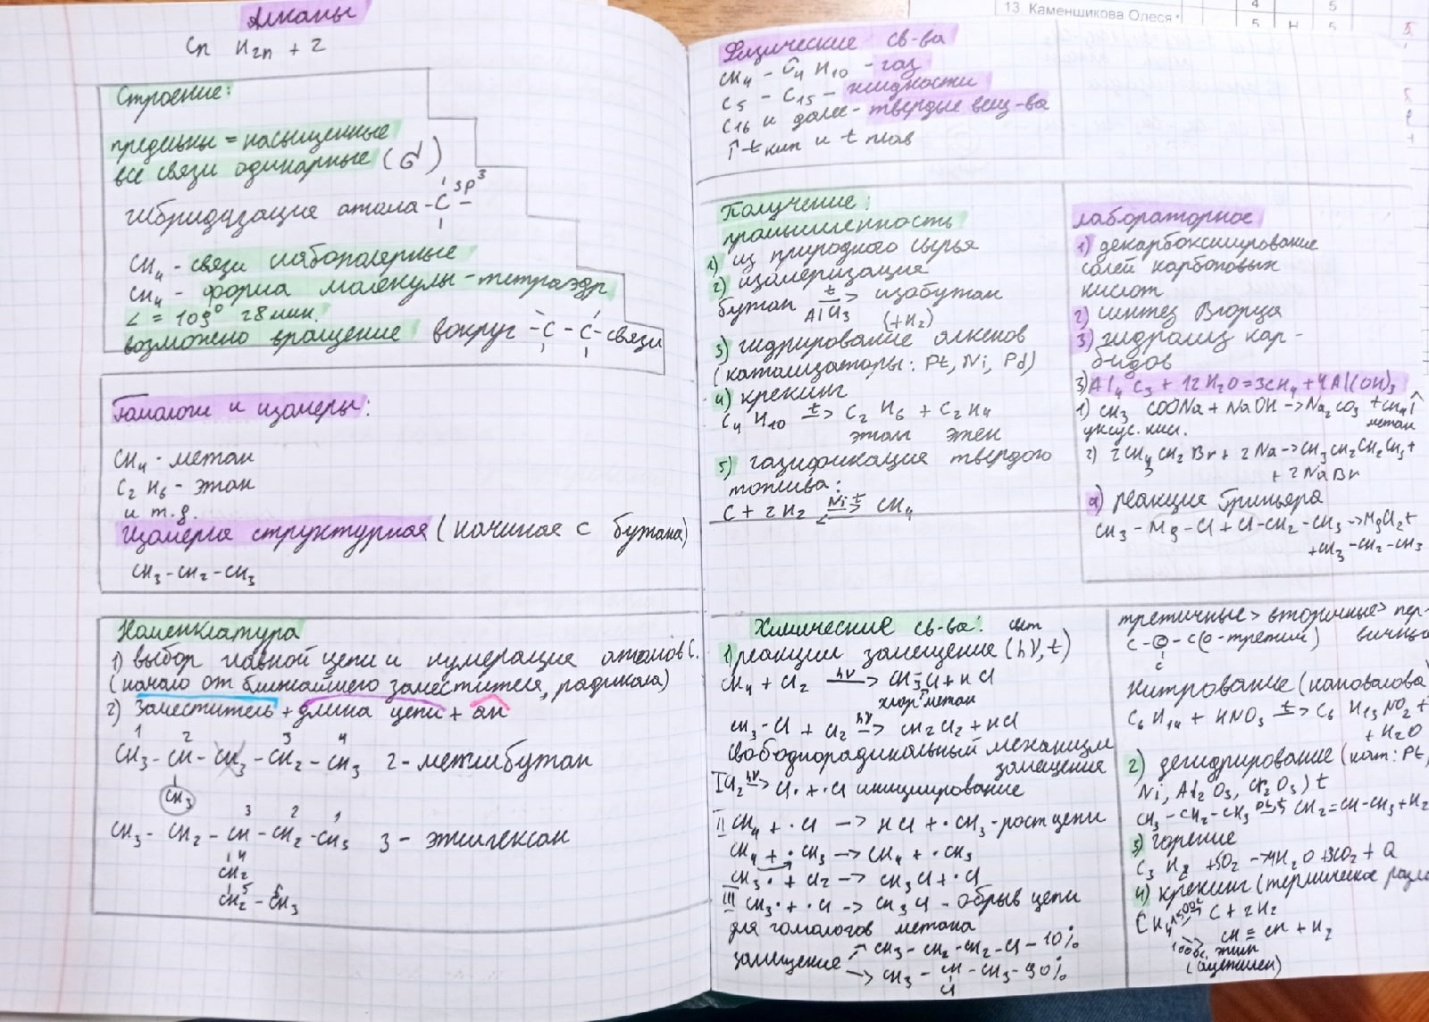 Алканы
Cn H2n + 2
Строение:
предельны = насыщенные
все связи одинарные (σ)
гибридизация атома -C- sp³
CH4 - связи слабополярные
CH4 - форма молекулы - тетраэдр
∠ = 109° 28 мин.
возможено вращение вокруг -C-C- связи
Гомологи и изомеры:
CH4 - метан
C2H6 - этан
и т.д.
Изомерия структурная (начиная с бутана)
CH3-CH2-CH3
Номенклатура
1) выбор главной цепи и нумерация атомов C.
(начало от ближайшего заместителя, радикала)
2) Заместитель + длина цепи + ан
1 2 3 4
CH3-CH-CH3-CH2-CH3 2-метилбутан
CH3
3 2 1
CH3-CH2-CH-CH2-CH3 3-этилгексан
4
CH2
5 6
CH2-CH3
13 Каменщикова Олеся
4 5
5 Н 5
Физические св-ва
CH4 - C4H10 - газ
C5 - C15 - жидкости
C16 и далее - твердые вещ-ва
↑ t кип и t плав
Получение:
промышленность
1) из природного сырья
2) изомеризация
бутан t→ AlCl3 изобутан
(+H2)
3) гидрирование алкенов
(катализаторы: Pt, Ni, Pd)
4) крекинг
C4H10 t→ C2H6 + C2H4
этан этен
5) газификация твердого
топлива:
C + 2H2 Ni t⇄ CH4
лабораторное
1) декарбоксилирование
солей карбоновых
кислот
2) синтез Вюрца
3) гидролиз кар-
бидов
3) Al4C3 + 12H2O = 3CH4 + 4Al(OH)3
1) CH3COONa + NaOH → Na2CO3 + CH4↑
уксус. кисл. метан
2) 2CH3CH2Br + 2Na → CH3CH2CH2CH3 +
+ 2NaBr
реакция Гриньяра
CH3-Mg-Cl + Cl-CH2-CH3 → MgCl2 +
+CH3-CH2-CH3
Химические св-ва: свет
1) реакции замещения (hν, t)
CH4 + Cl2 hν→ CH3Cl + HCl
хлорметан
CH3-Cl + Cl2 hν→ CH2Cl2 + HCl
Свободнорадикальный механизм
замещения
I Cl2 hν→ Cl· + ·Cl инициирование
II CH4 + ·Cl → HCl + ·CH3 - рост цепи
CH4 + ·CH3 → CH4 + ·CH3
CH3· + Cl2 → CH3Cl + ·Cl
III CH3· + ·Cl → CH3Cl - обрыв цепи
для гомологов метана
замещение → CH3-CH2-CH2-Cl - 10%
→ CH3-CH-CH3 - 90%
Cl
третичные > вторичные > пер-
C-C-C (C-третий) вичные
C
Нитрование (Коновалова)
C6H14 + HNO3 t→ C6H13NO2 +
+ H2O
2) дегидрирование (кат: Pt,
Ni, Al2O3, Cr2O3) t
CH3-CH2-CH3 Pt t→ CH2=CH-CH3 + H2
3) горение
C3H8 + 5O2 → 4H2O + 3CO2 + Q
4) крекинг (термическое
CH4 → C + 2H2
→ CH≡CH + H2
этин
(ацетилен)